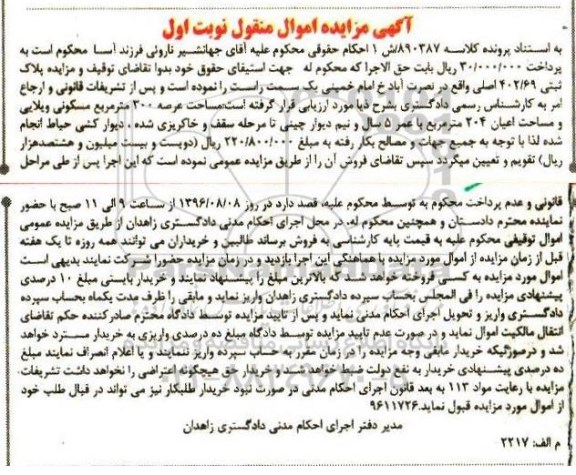 آگهی مزایده اموال منقول نوبت اول
به استناد پرونده کلاسه ۸۹۰۳۸۷/ش ۱ احکام حقوقی محکوم علیه آقای جهانشیر نارونی فرزند آسا محکوم است به
پرداخت ۳۰/۰۰۰/۰۰۰ ریال بابت حق الاجرا که محکوم له جهت استیفای حقوق خود بدوا تقاضای توقیف و مزایده پلاک
ثبتی ۴۰۲/۶۹ اصلی واقع در نصرت آباد خ امام خمینی یک سمت راست را نموده است و پس از تشریفات قانونی و ارجاع
امر به کارشناس رسمی دادگستری بشرح ذیل مورد ارزیابی قرار گرفته است:مساحت عرصه ۳۰۰ مترمربع مسکونی ویلایی
و مساحت اعیان ۲۰۴ مترمربع با عمر ۵ سال و نیم دیوار چینی تا مرحله سقف و خاکریزی شده ، دیوار کشی حیاط انجام
شده لذا با توجه به جمیع جهات و مصالح بکار رفته به مبلغ ۲۲۰/۸۰۰/۰۰۰ ریال (دویست و بیست میلیون و هشتصدهزار
ریال) تقویم و تعیین میگردد سپس تقاضای فروش آن را از طریق مزایده عمومی نموده است که این اجرا پس از طی مراحل
قانونی و عدم پرداخت محکوم به توسط محکوم علیه، قصد دارد در روز ۱۳۹۶/۰۸/۰۸ از ساعت ۹ الی ۱۱ صبح با حضور
نماینده محترم دادستان و همچنین محکوم له، در محل اجرای احکام مدنی دادگستری زاهدان از طریق مزایده عمومی
اموال توقیفی محکوم علیه به قیمت پایه کارشناسی به فروش برساند طالبین و خریداران می توانند همه روزه تا یک هفته
قبل از زمان مزایده از اموال مورد مزایده با هماهنگی این اجرا بازدید و در زمان مزایده حضور/شرکت نمایند بدیهی است
اموال مورد مزایده به کسی فروخته خواهد شد که بالاترین مبلغ را پیشنهاد نمایند و خریدار بایستی مبلغ ۱۰ درصدی
پیشنهادی مزایده را فی المجلس بحساب سپرده دادگستری زاهدان واریز نماید و مابقی را ظرف مدت یکماه بحساب سپرده
دادگستری واریز و تحویل اجرای احکام مدنی نماید و پس از تایید مزایده توسط دادگاه محترم صادرکننده حکم تقاضای
انتقال مالکیت اموال نماید و در صورت عدم تایید مزایده توسط دادگاه مبلغ ده درصدی واریزی به خریدار مسترد خواهد
شد و درصورتیکه خریدار مابقی وجه مزایده را در زمان مقرر به حساب سپرده واریز ننمایند و یا اعلام انصراف نمایند مبلغ
ده درصدی پیشنهادی خریدار به نفع دولت ضبط خواهد شد و خریدار حق هیچگونه اعتراضی را نخواهد داشت تشریفات
مزایده با رعایت مواد ۱۱۳ به بعد قانون اجرای احکام مدنی در صورت نبود خریدار طلبکار نیز می تواند در قبال طلب خود
از اموال مورد مزایده قبول نماید.۹۶۱۱۷۲۶
مدیر دفتر اجرای احکام مدنی دادگستری زاهدان
م الف: ۲۲۱۷